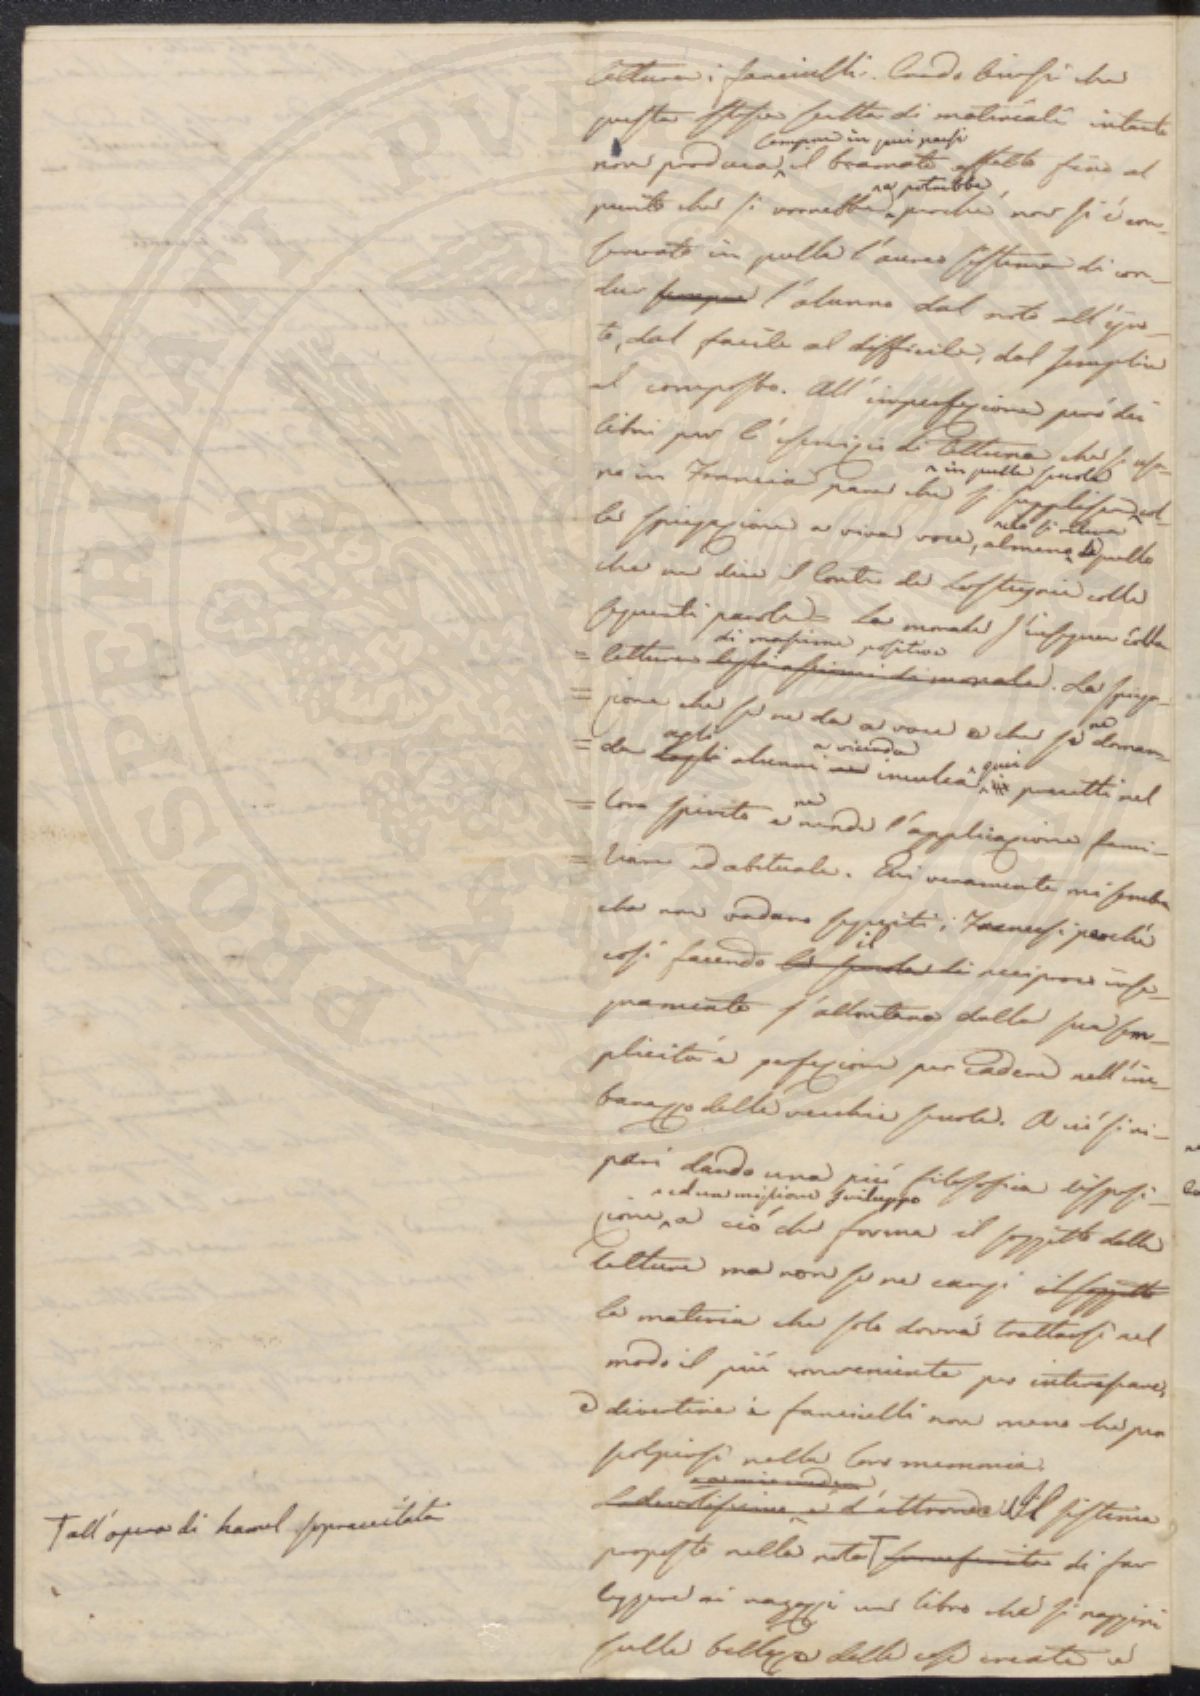 letture i fanciulli. Credo bensì che
questa stessa scelta di materiali intanto
compiere in quei paesi
non produca il bramato effetto fino al
ne potrebbe
punto che si vorrebbe perché non si è con-
servato in quella l'aureo sistema di con-
dur sempre l'alunno dal noto all'igno-
to, dal facile al difficile, dal semplice
al composto. All'imperfezione però dei
libri per l'esercizio di lettura che si usa-
no in Francia pare che si supplisca col-
in quelle scuole
la spiegazione a viva voce, almeno quello
che ne dice il Conte de Lasteyrie colle
seguenti parole = La morale s'insegna colla
di massime positive
= lettura di morale. La spiega-
= zione che se ne da a voce e che se ne doman-
agli a vicenda
= da alunni inculca quei precetti nel
= loro spirito e ne rende l'applicazione fami-
= liare ed abituale. Qui veramente mi sembra
che non vadano seguiti i Francesi perché
il
così facendo la scuola di reciproco inse-
gnamento s'allontana dalla sua sem-
plicità e perfezione per cadere nell'im-
barazzo delle vecchie scuole. A ciò si ri-
pari dando una più filosofica disposi-
ed un migliore sviluppo
zione a ciò che forma il soggetto delle
letture ma non se ne cangi il soggetto
la materia che solo dovrà trattarsi nel
modo il più conveniente per interessare,
e divertire i fanciulli non meno che per
scolpirsi nella loro memoria.
è d'altronde Il sistema
proposto nella nota di far
leggere ai ragazzi un libro che si raggiri
sulle bellezze delle cose create e
all'opera di Hamel sopraccitata